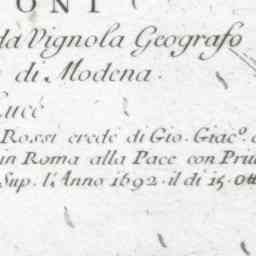 ONI
da Vignola Geografo
di Modena.
Luce
Rossi erede di Gio. Giac°.
in Roma alla Pace con
Sup. l'Anno 1692. il di 15.